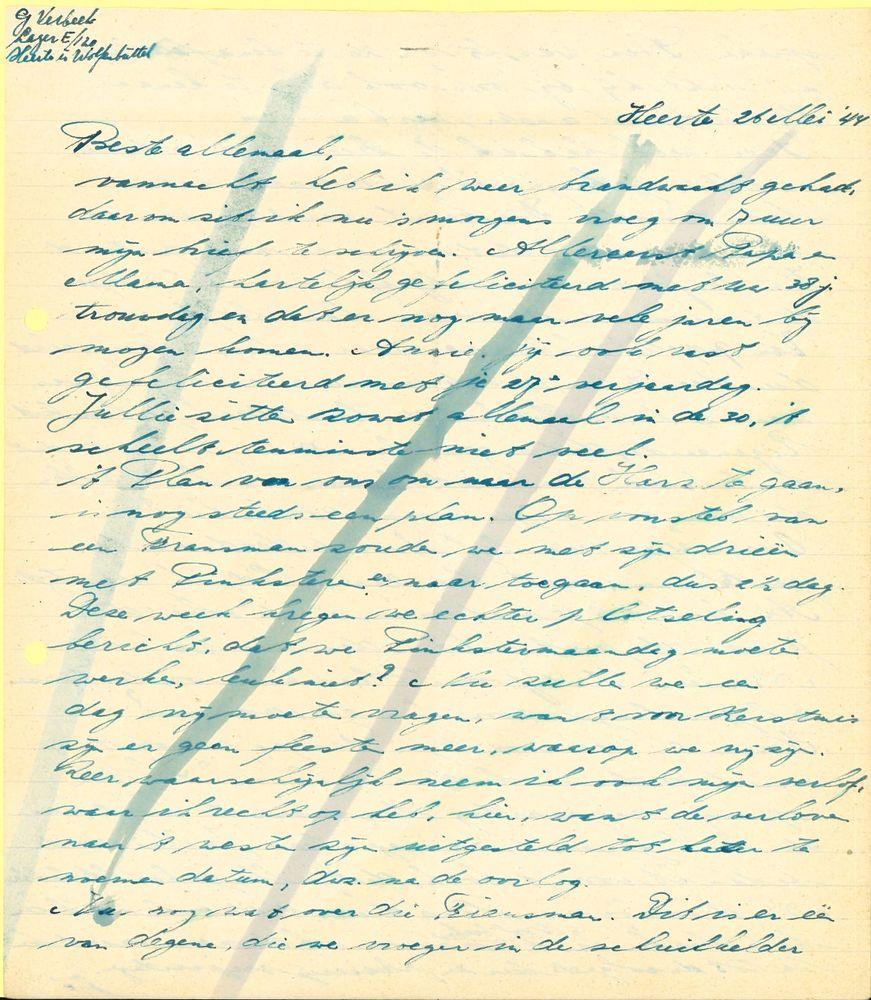 G Verbeek
Lager E/120
Heerte ü Wolfenbüttel
Heerte 26 Mei '44
Beste allemaal,
vannacht heb ik weer brandwacht gehad,
daarom zit ik nu 's morgens vroeg om 7 uur
mijn brief te schrijven. Allereerst Papa en
Mama, hartelijk gefeliciteerd met uw 38 j.
trouwdag en dat er nog maar vele jaren bij
mogen komen. Annie, jij ook vast
gefeliciteerd met je 27e verjaardag.
Jullie zitten zowat allemaal in de 30, 't
scheelt tenminste niet veel.
't Plan van ons om naar de Harz te gaan,
is nog steeds een plan. Op voorstel van
een Fransman zouden we met zijn drieën
met Pinksteren er naar toegaan, dus 2½ dag.
Deze week kregen we echter plotseling
bericht, dat we Pinkstermaandag moeten
werken, leuk niet? Nu zullen we een
dag vrij moeten vragen, want voor Kerstmis
zijn er geen feesten meer, waarop we vrij zijn.
Zeer waarschijnlijk neem ik ook mijn verlof,
waar ik recht op heb, hier, want de verloven
naar 't westen zijn uitgesteld tot later te
noemen datum, dwz. na de oorlog.
Nu nog wat over die Fransman. Dit is er één
van degene, die we vroeger in de schuilkelder